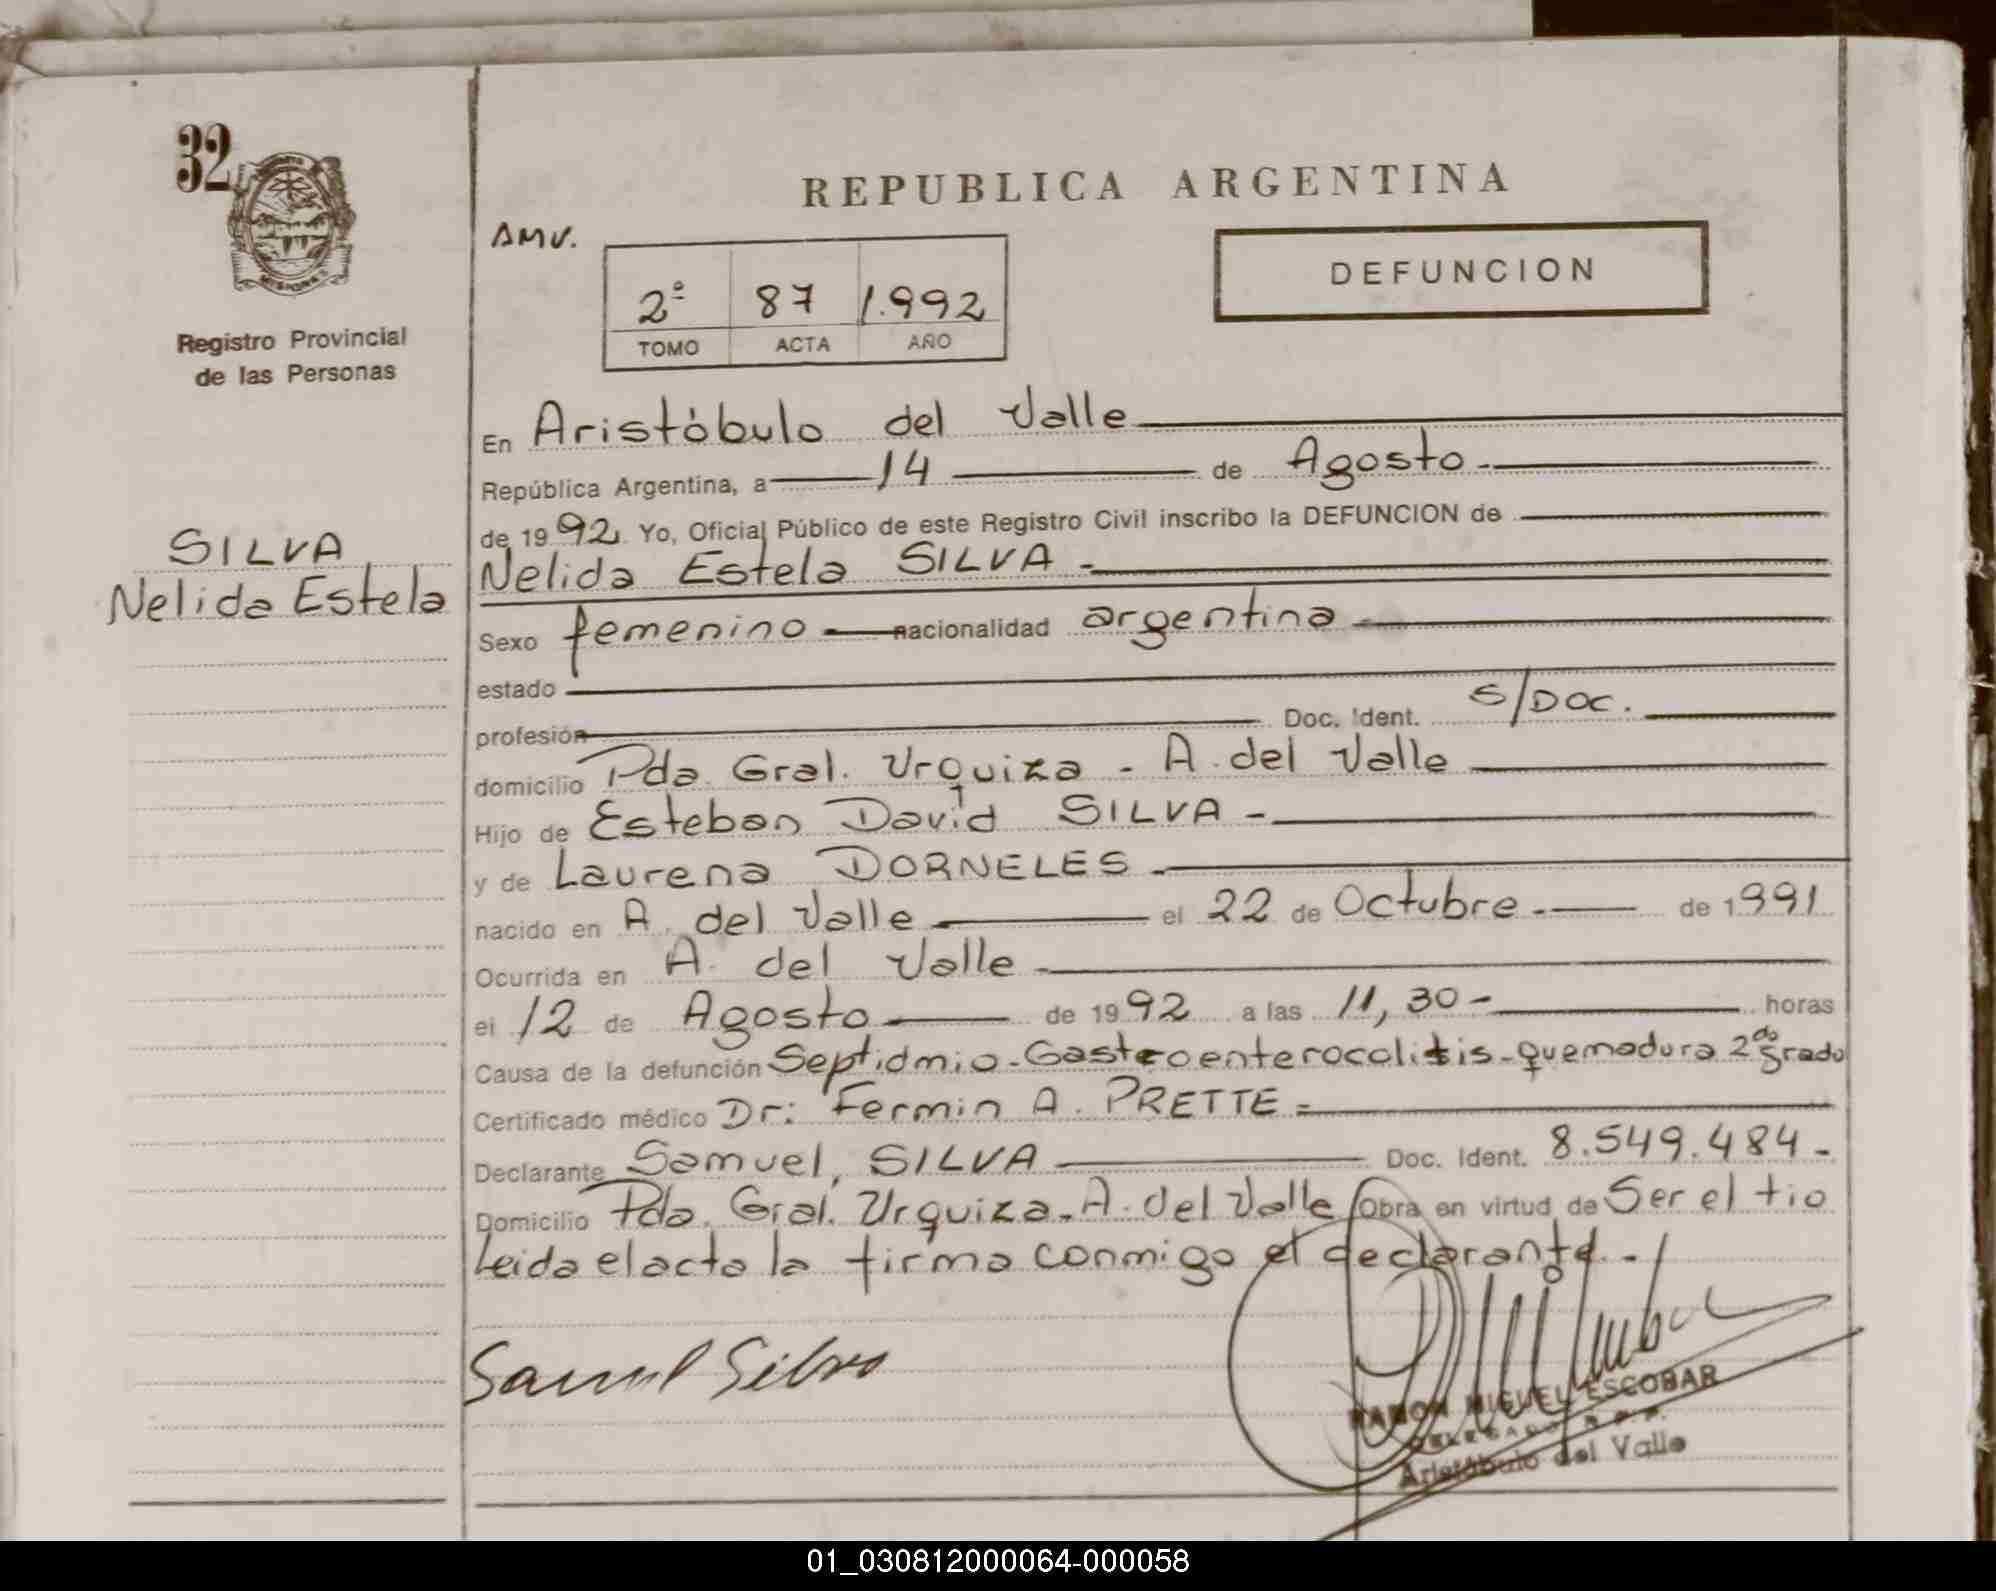 32
Registro Provincial
de las Personas
SILVA
Nelida Estela
REPUBLICA ARGENTINA
AMV.
2º 87 1.992
TOMO ACTA AÑO
DEFUNCION
En Aristóbulo del Valle
República Argentina, a 14 de Agosto.-
de 1992 Yo, Oficial Público de este Registro Civil inscribo la DEFUNCION de
Nelida Estela SILVA -
Sexo femenino nacionalidad argentina
estado
profesión Doc. Ident. S/DOC.
domicilio Pda. Gral. Urquiza - A. del Valle
Hijo de Esteban David SILVA -
y de Laurena DORNELES -
nacido en A. del Valle el 22 de Octubre.- de 1991
Ocurrida en A. del Valle
el 12 de Agosto de 1992 a las 11,30 - horas
Causa de la defunción Septidmio - Gastroenterocolitis - quemadura 2do grado
Certificado médico Dr: Fermin A. PRETTE =
Declarante Samuel, SILVA Doc. Ident. 8.549.484 -
Domicilio Pda. Gral. Urquiza. A. del Valle Obra en virtud de Ser el tio
Leida el acta la firma conmigo el declarante.-
Samuel Silva
RAMON MIGUEL ESCOBAR
DELEGADO R.P.P.
Aristóbulo del Valle
01_030812000064-000058